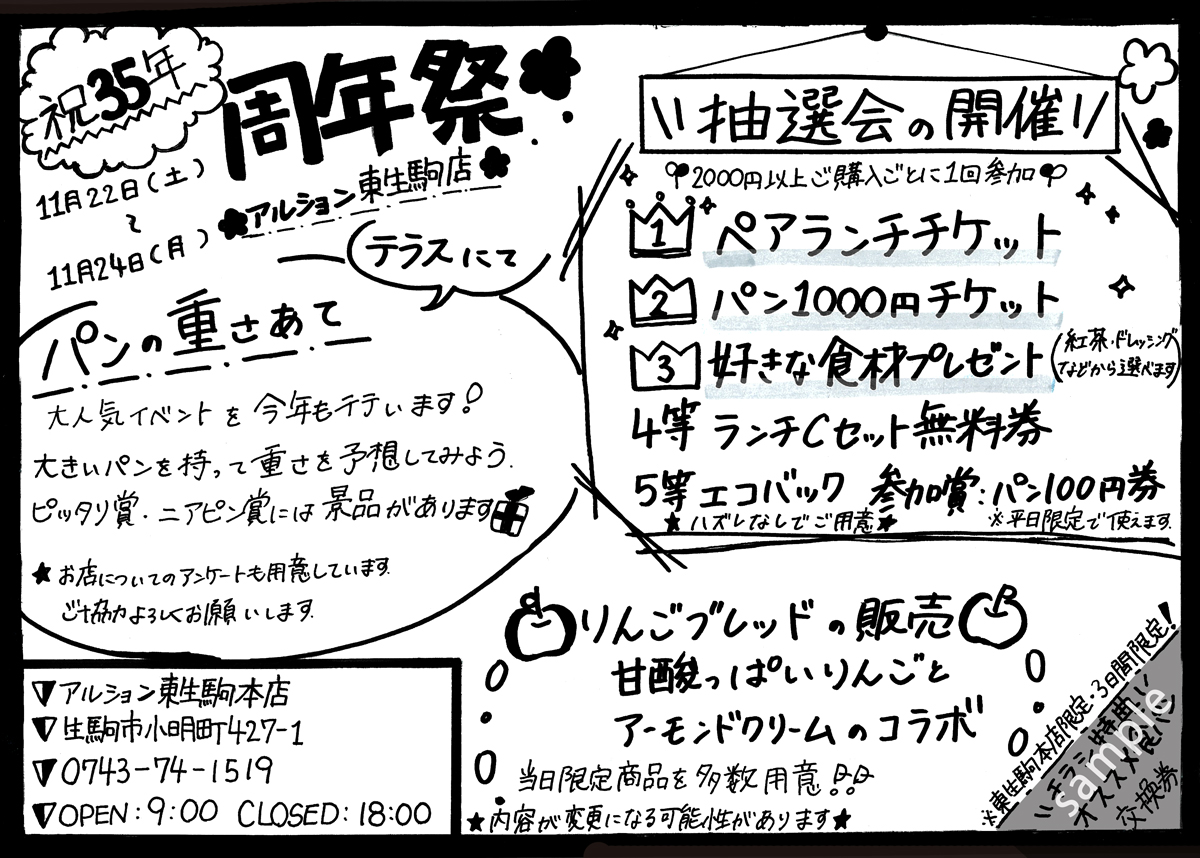 祝35年
周年祭
アルション東生駒店
11月22日(土)
〜
11月24日(月)
テラスにて
パンの重さあて
大人気イベントを今年も行います!
大きいパンを持って重さを予想してみよう.
ピッタリ賞・ニアピン賞には景品があります
★お店についてのアンケートも用意しています.
ご協力よろしくお願いします.
\\抽選会の開催//
2000円以上ご購入ごとに1回参加
1 ペアランチチケット
2 パン1000円チケット
3 好きな食材プレゼント(紅茶・ドレッシングなどから選べます)
4等 ランチCセット無料券
5等 エコバック 参加賞:パン100円券
★ハズレなしでご用意★ ※平日限定で使えます.
りんごブレッドの販売
甘酸っぱいりんごと
アーモンドクリームのコラボ
当日限定商品を多数用意!!
★内容が変更になる可能性があります★
▼アルション東生駒本店
▼生駒市小明町427-1
▼0743-74-1519
▼OPEN:9:00 CLOSED:18:00
※東生駒本店限定・3日間限定!
オススメ食パン
交換券
sample